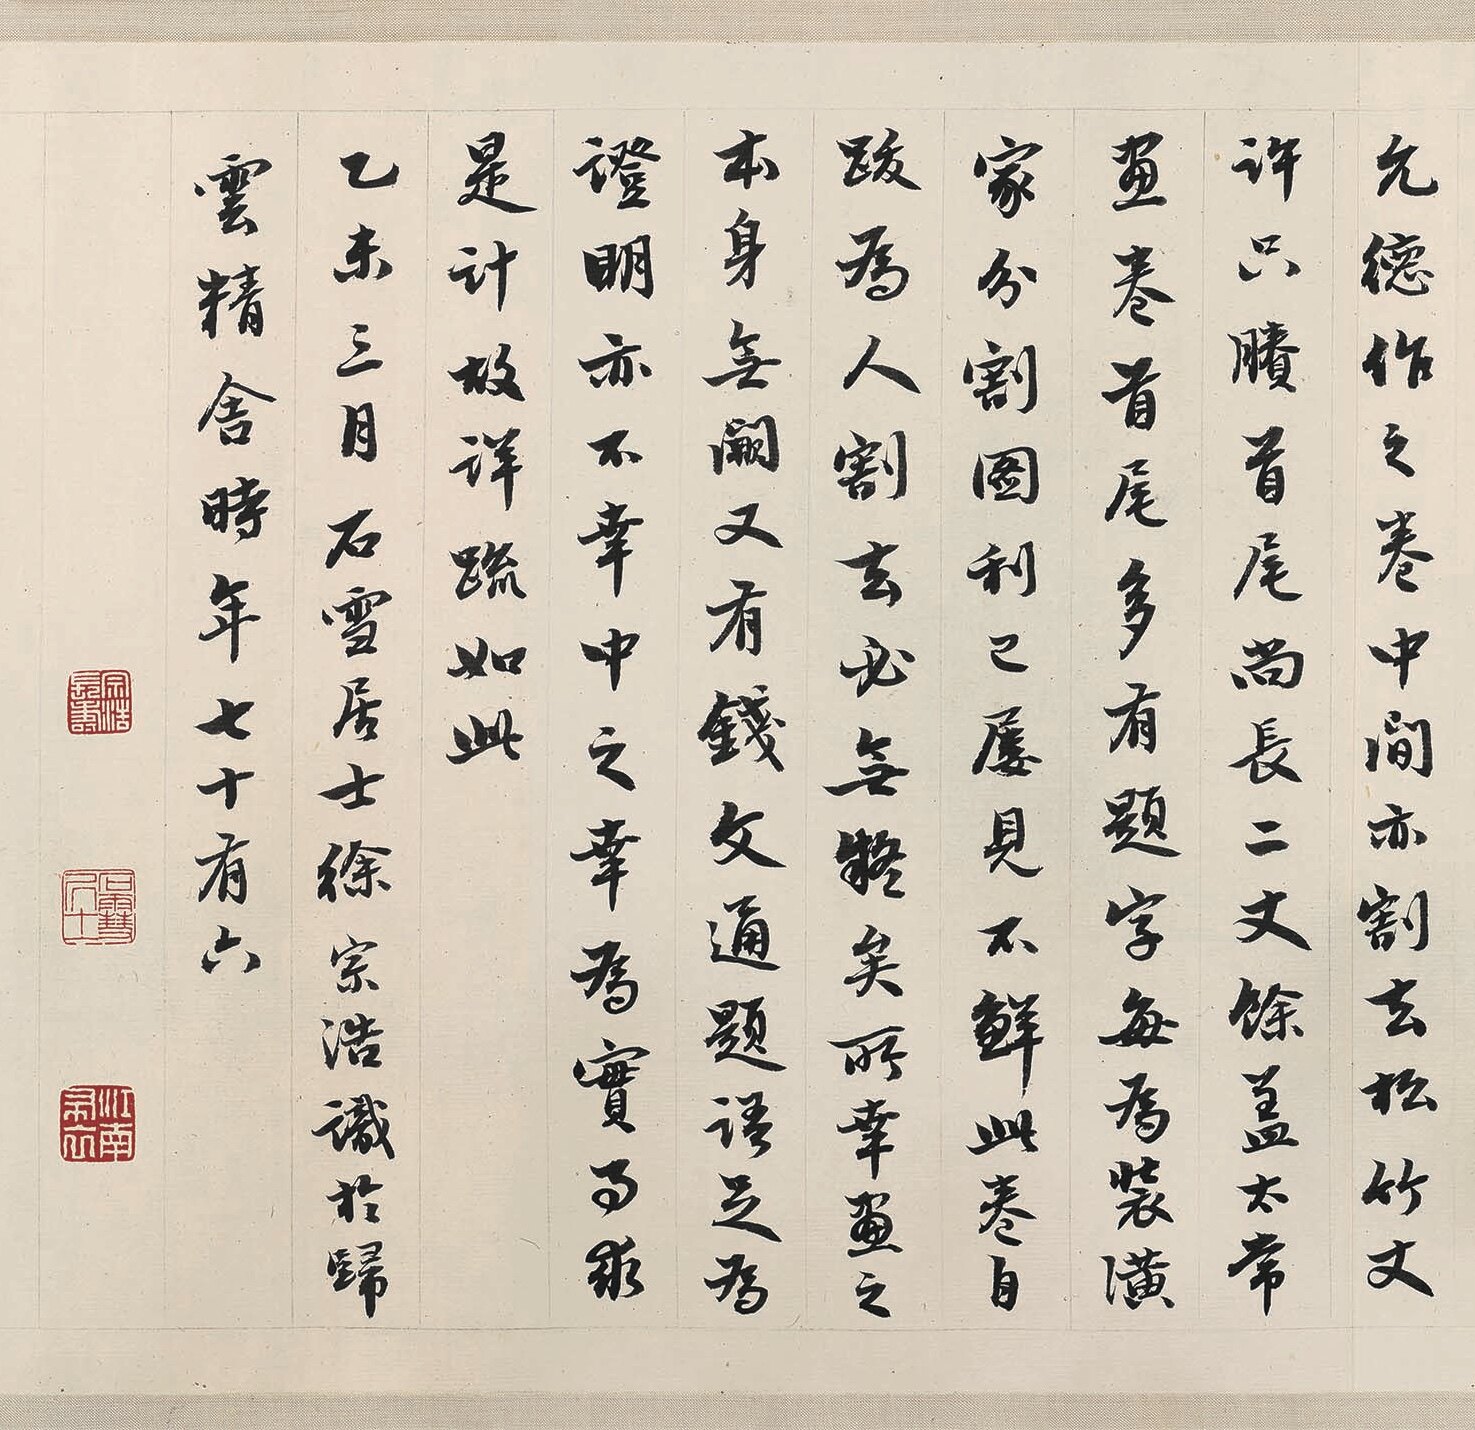 允德作之卷中間亦割去松竹丈
許只賸首尾尚長二丈餘蓋太常
畫卷首尾多有題字每為裝潢
家分割圖利已屡見不鮮此卷自
跋為人割去必無疑矣所幸畫之
本身無闕又有錢文通題語足為
證明亦不幸中之幸為實事求
是計故詳疏如此
乙未三月石雪居士徐宗浩識於歸
雲精舍時年七十有六
宗浩長壽
石雪居士
江南布衣